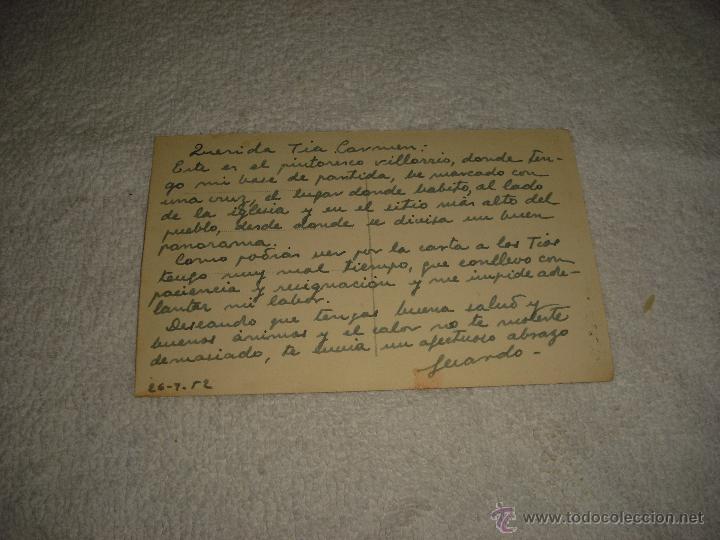 Querida Tia Carmen:
Este es el pintoresco villorrio, donde ten-
go mi base de partida, he marcado con
una cruz, el lugar donde habito, al lado
de la iglesia y en el sitio más alto del
pueblo, desde donde se divisa un buen
panorama.
Como podrás ver por la carta a los Tios
tengo muy mal tiempo, que conllevo con
paciencia y resignación y me impide ade-
lantar mi labor.
Deseando que tengas buena salud y
buenos ánimos y el calor no te moleste
demasiado, te envia un afectuoso abrazo
26-7-52
todocoleccion
www.todocoleccion.net